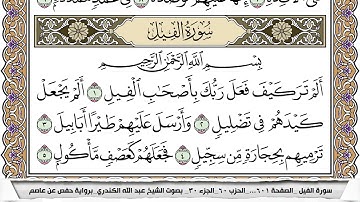 سُورَةُ الفِيلِ
بِسْمِ اللَّهِ الرَّحْمَٰنِ الرَّحِيمِ
أَلَمْ تَرَ كَيْفَ فَعَلَ رَبُّكَ بِأَصْحَابِ الْفِيلِ ١ أَلَمْ يَجْعَلْ
كَيْدَهُمْ فِي تَضْلِيلٍ ٢ وَأَرْسَلَ عَلَيْهِمْ طَيْرًا أَبَابِيلَ ٣
تَرْمِيهِم بِحِجَارَةٍ مِّن سِجِّيلٍ ٤ فَجَعَلَهُمْ كَعَصْفٍ مَّأْكُولٍ ٥
سورة الفيل _الصفحة ٦٠١_ ... الحزب ٦٠_ الجزء ٣٠_ بصوت الشيخ عبد الله الكندري _برواية حفص عن عاصم